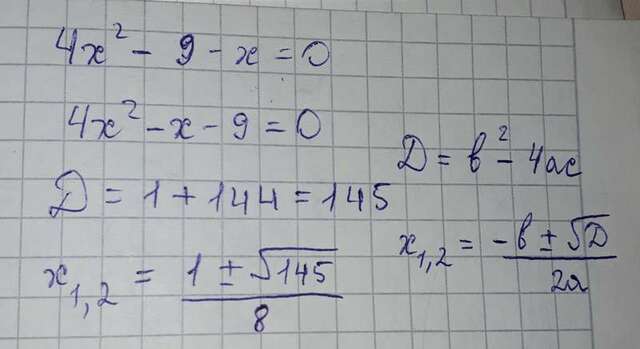 4x² - 9 - x = 0
4x² - x - 9 = 0
D = b² - 4ac
D = 1 + 144 = 145
x₁,₂ = (-b ± √D) / 2a
x₁,₂ = (1 ± √145) / 8